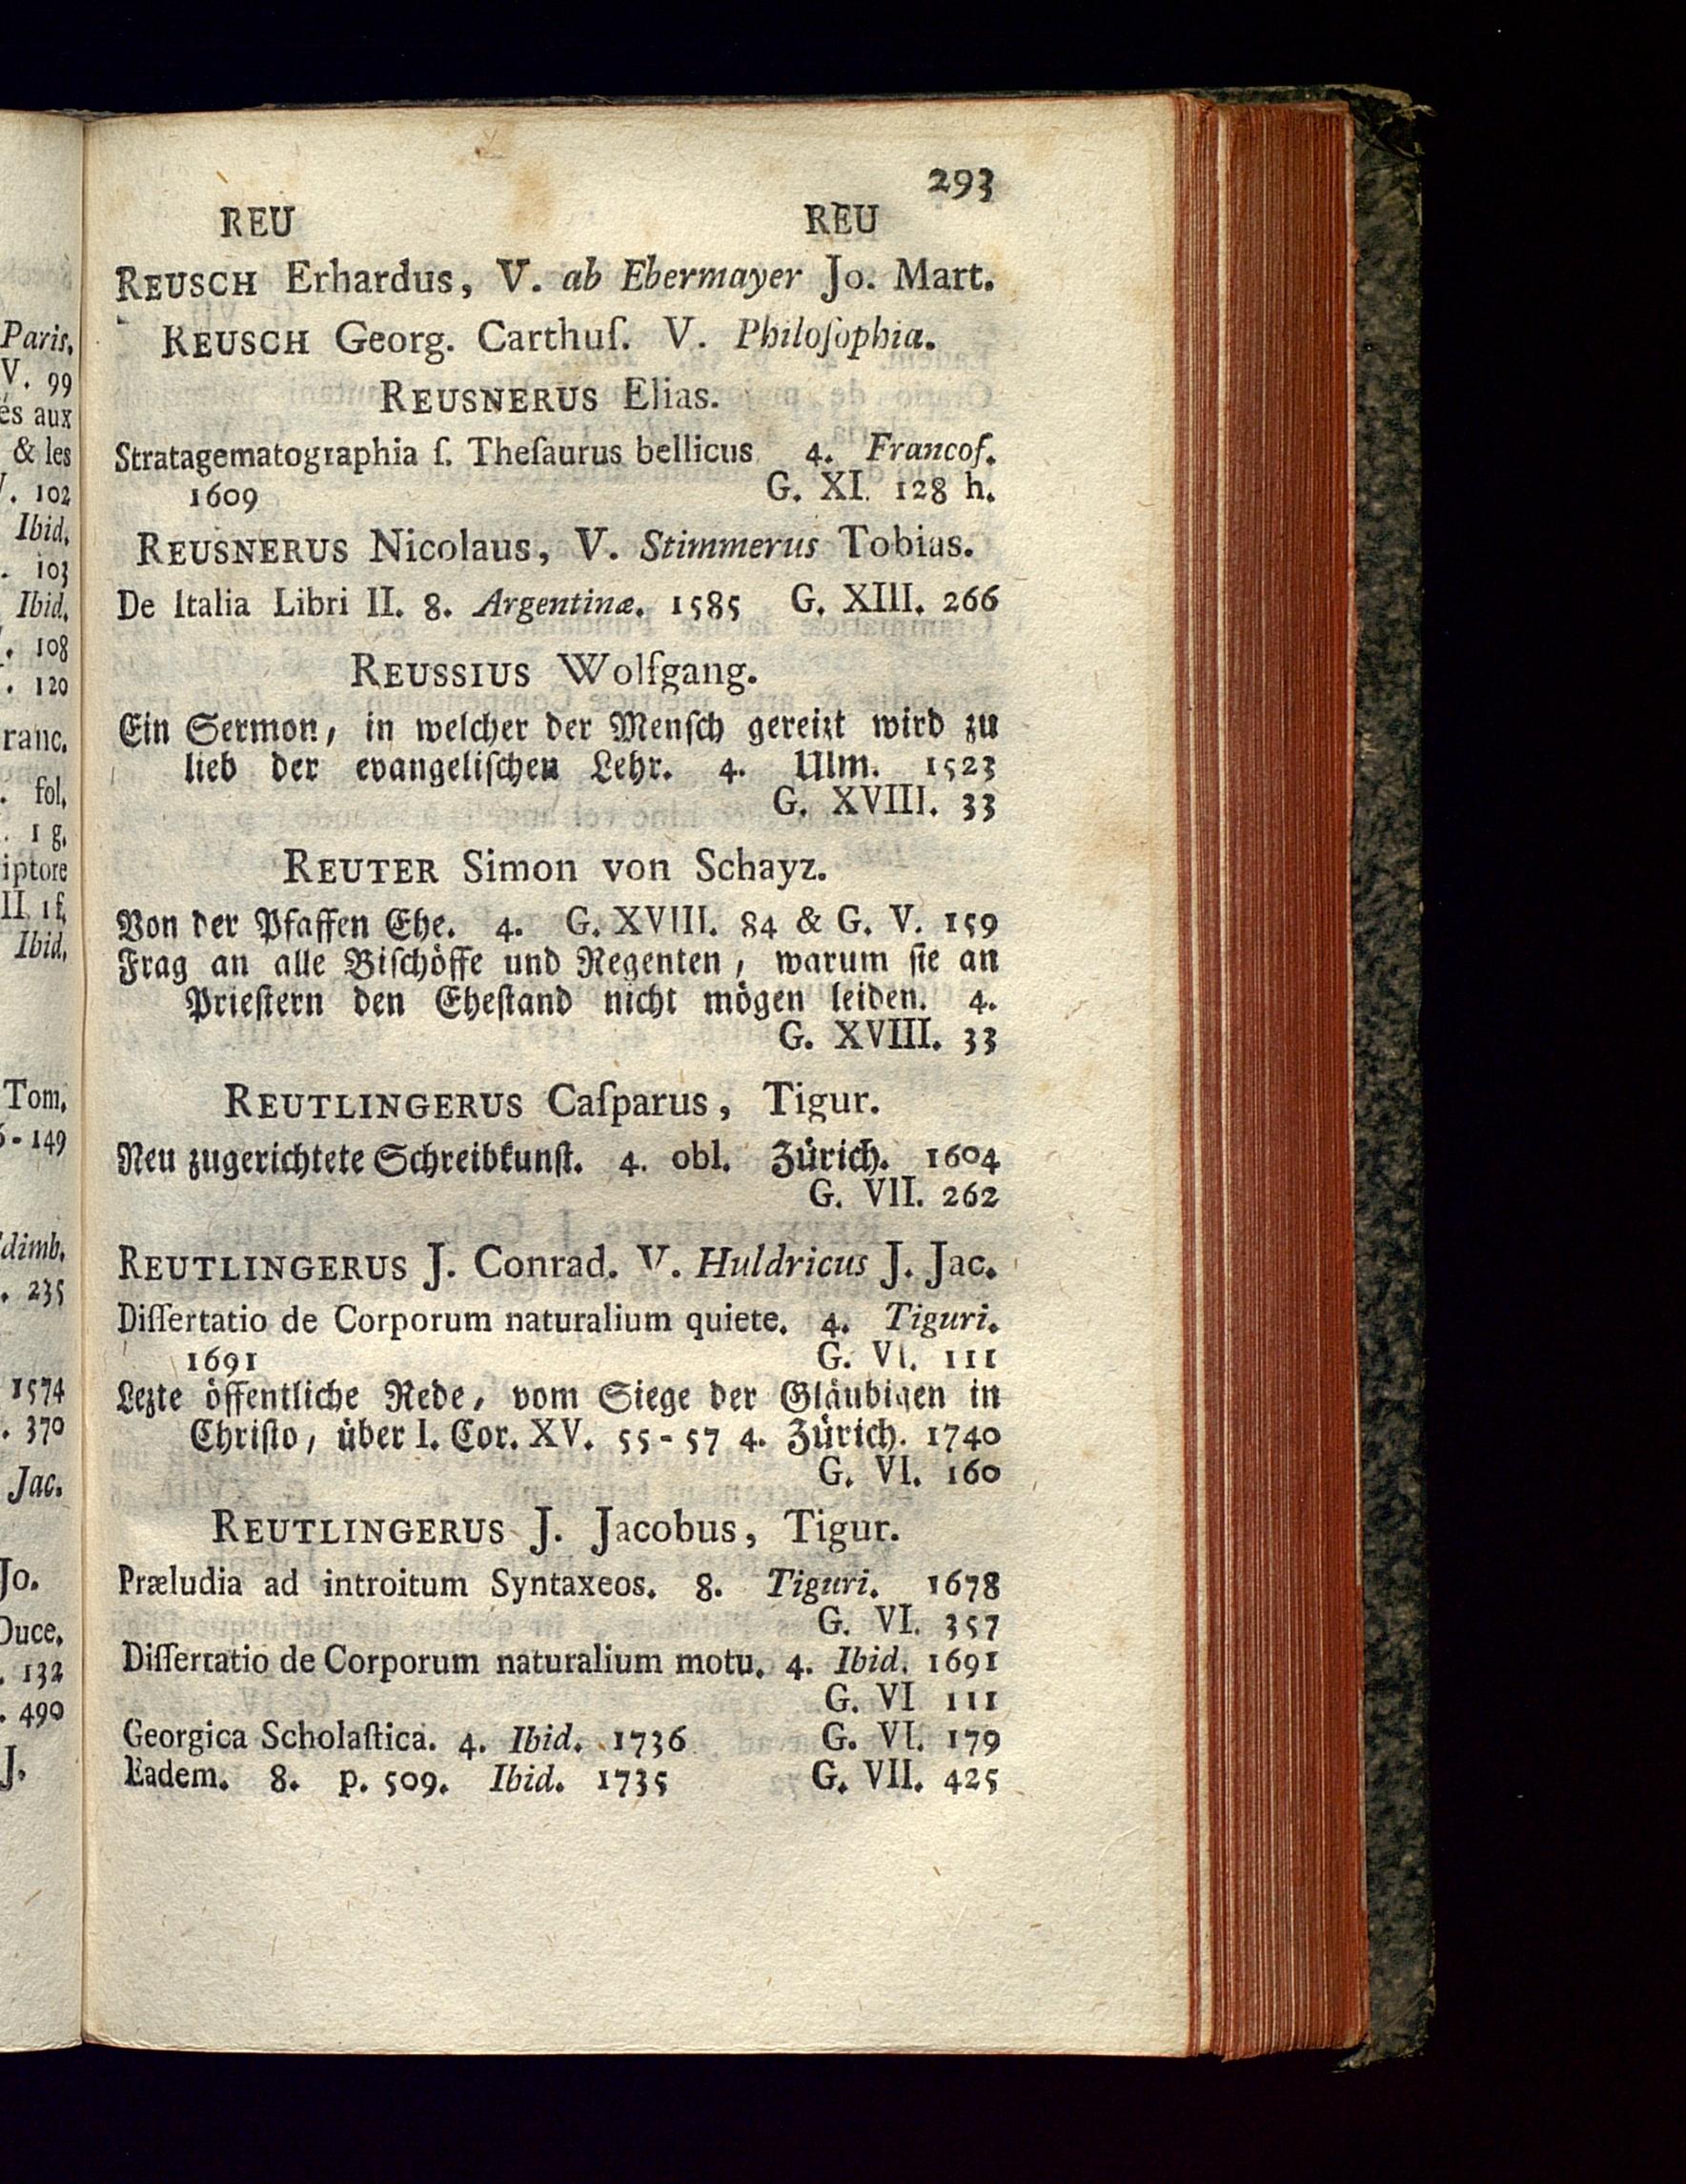 Paris.
V. 99
és aux
& les
V. 102
Ibid.
. 103
Ibid.
. 108
. 120
ranc.
. fol.
. 1 g.
iptore
II. 1 f.
Ibid.
Tom.
6-149
dimb.
. 235
1574
. 370
Jac.
Jo.
Duce.
. 132
. 490
J.
293
REU REU
REUSCH Erhardus, V. ab Ebermayer Jo. Mart.
REUSCH Georg. Carthuſ. V. Philoſophia.
REUSNERUS Elias.
Stratagematographia ſ. Theſaurus bellicus 4. Francof.
1609 G. XI. 128 h.
REUSNERUS Nicolaus, V. Stimmerus Tobias.
De Italia Libri II. 8. Argentinæ. 1585 G. XIII. 266
REUSSIUS Wolfgang.
Ein Sermon, in welcher der Menſch gereizt wird zu
lieb der evangeliſchen Lehr. 4. Ulm. 1523
G. XVIII. 33
REUTER Simon von Schayz.
Von der Pfaffen Ehe. 4. G. XVIII. 84 & G. V. 159
Frag an alle Biſchöffe und Regenten, warum ſie an
Prieſtern den Eheſtand nicht mögen leiden. 4.
G. XVIII. 33
REUTLINGERUS Caſparus, Tigur.
Neu zugerichtete Schreibkunſt. 4. obl. Zürich. 1604
G. VII. 262
REUTLINGERUS J. Conrad. V. Huldricus J. Jac.
Diſſertatio de Corporum naturalium quiete. 4. Tiguri.
1691 G. VI. 111
Lezte öffentliche Rede, vom Siege der Gläubigen in
Chriſto, über I. Cor. XV. 55-57 4. Zürich. 1740
G. VI. 160
REUTLINGERUS J. Jacobus, Tigur.
Præludia ad introitum Syntaxeos. 8. Tiguri. 1678
G. VI. 357
Diſſertatio de Corporum naturalium motu. 4. Ibid. 1691
G. VI 111
Georgica Scholaſtica. 4. Ibid. 1736 G. VI. 179
Eadem. 8. p. 509. Ibid. 1735 G. VII. 425